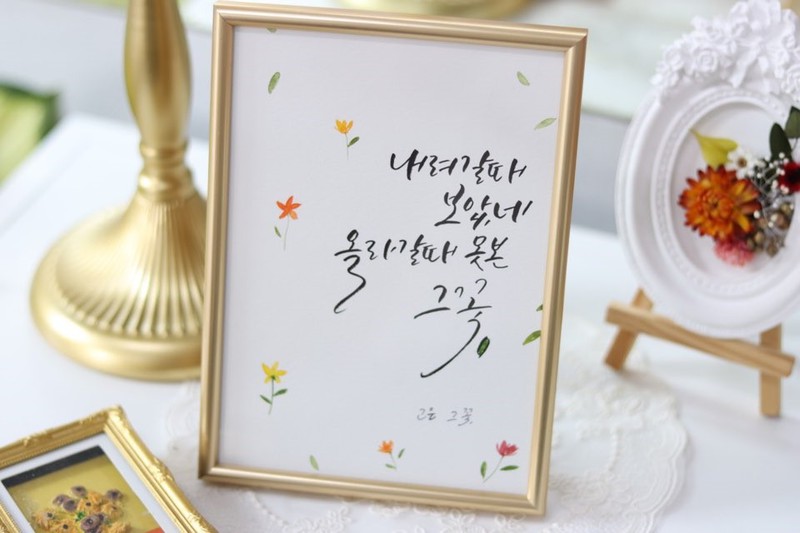 내려갈때
보았네
올라갈때 못본
그 꽃
고은 그 꽃